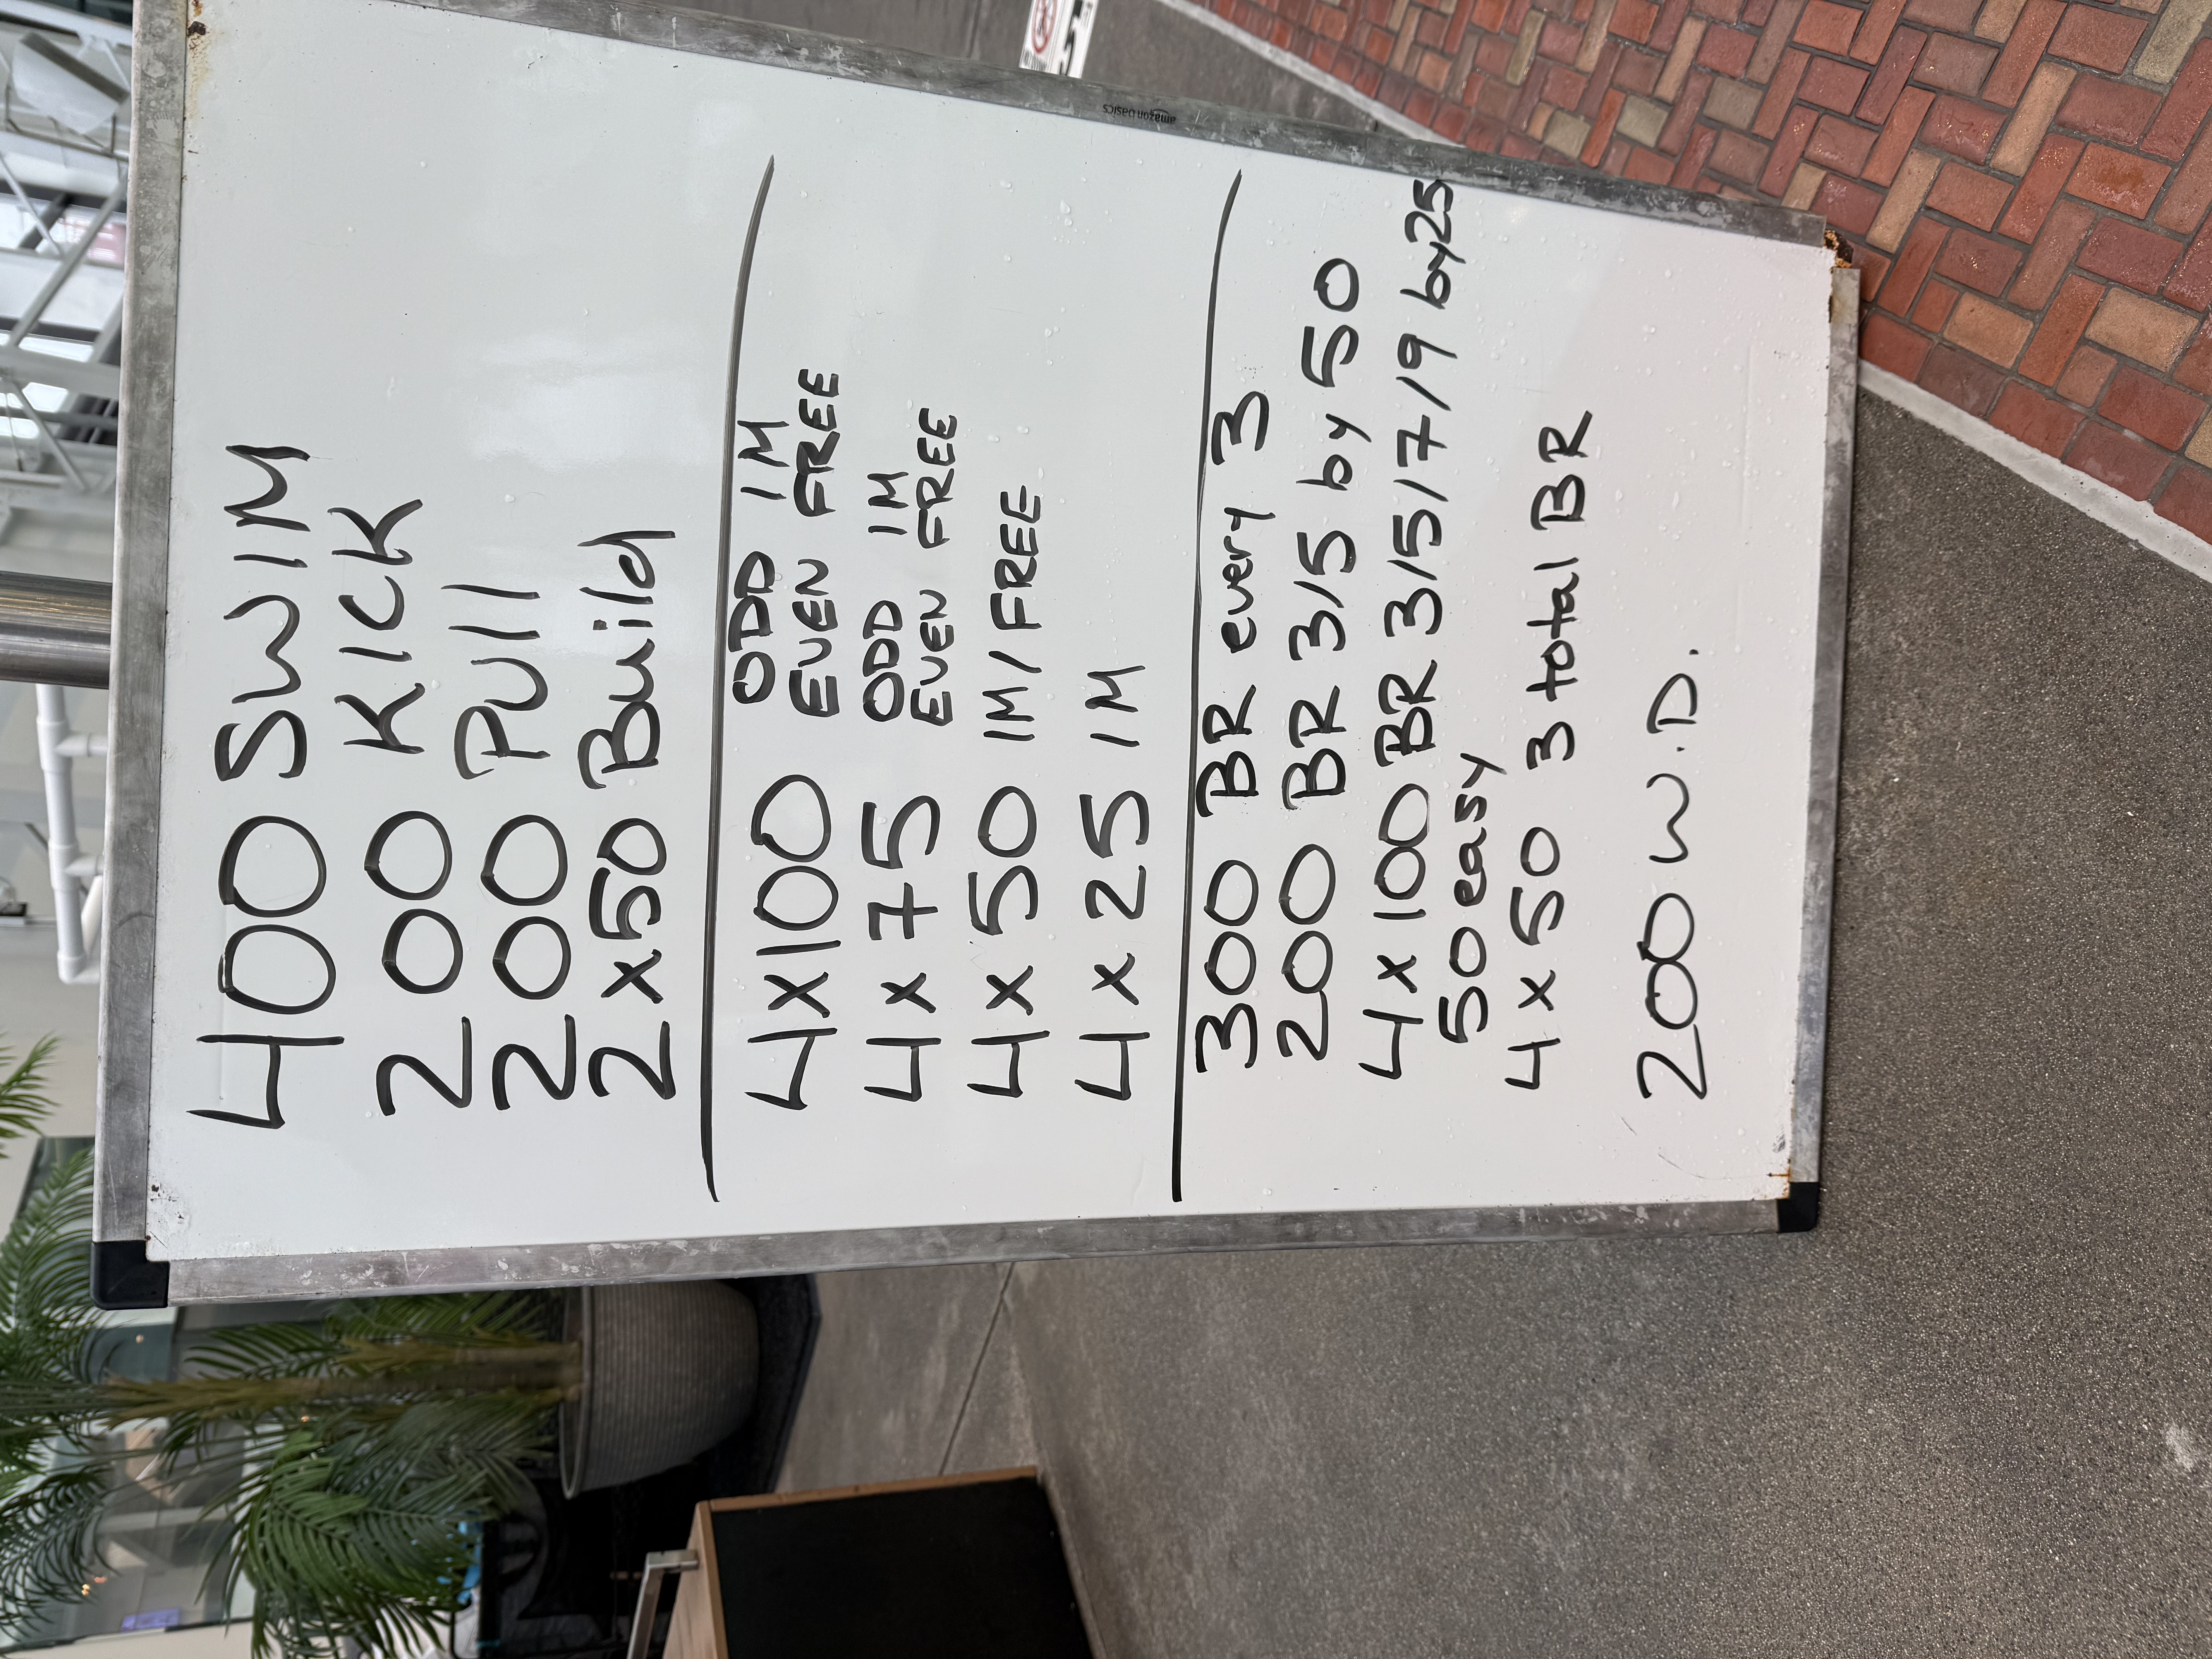 400 SWIM
200 KICK
200 Pull
2x50 Build
4x100 ODD IM
EVEN FREE
4x75 ODD IM
EVEN FREE
4x50 IM/FREE
4x25 IM
300 BR every 3
200 BR 3/5 by 50
4x100 BR 3/5/7/9 by 25
50 easy
4x50 3 total BR
200 W.D.
amazon basics